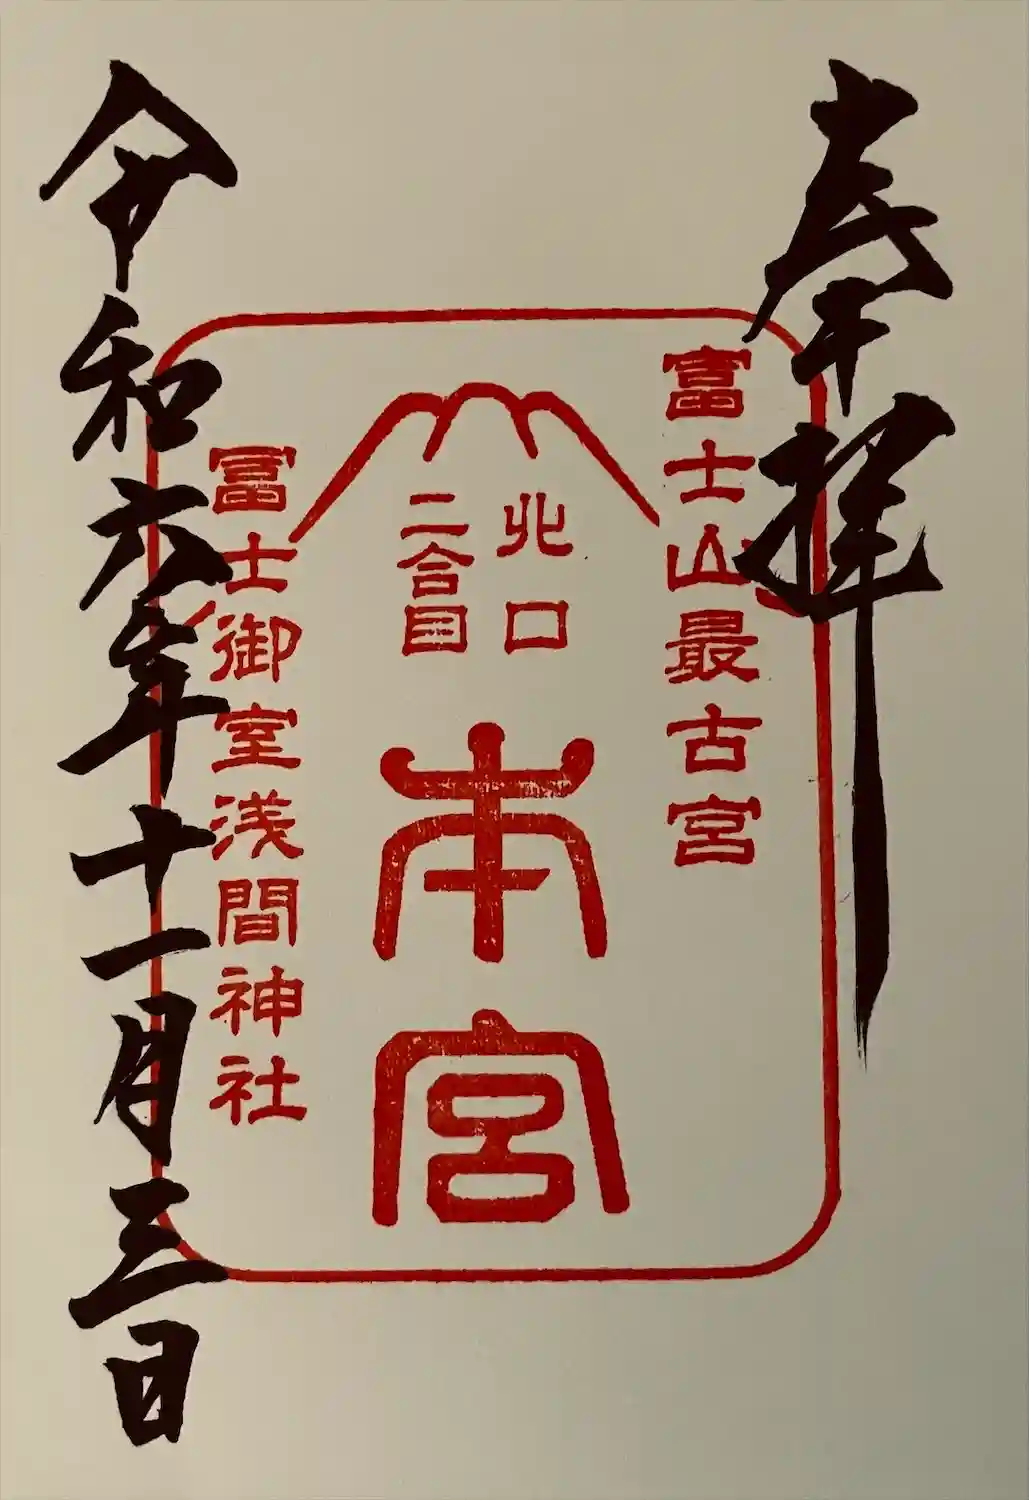 奉拝
富士山最古宮
北口
二合目
本宮
冨士御室浅間神社
令和六年十一月三日